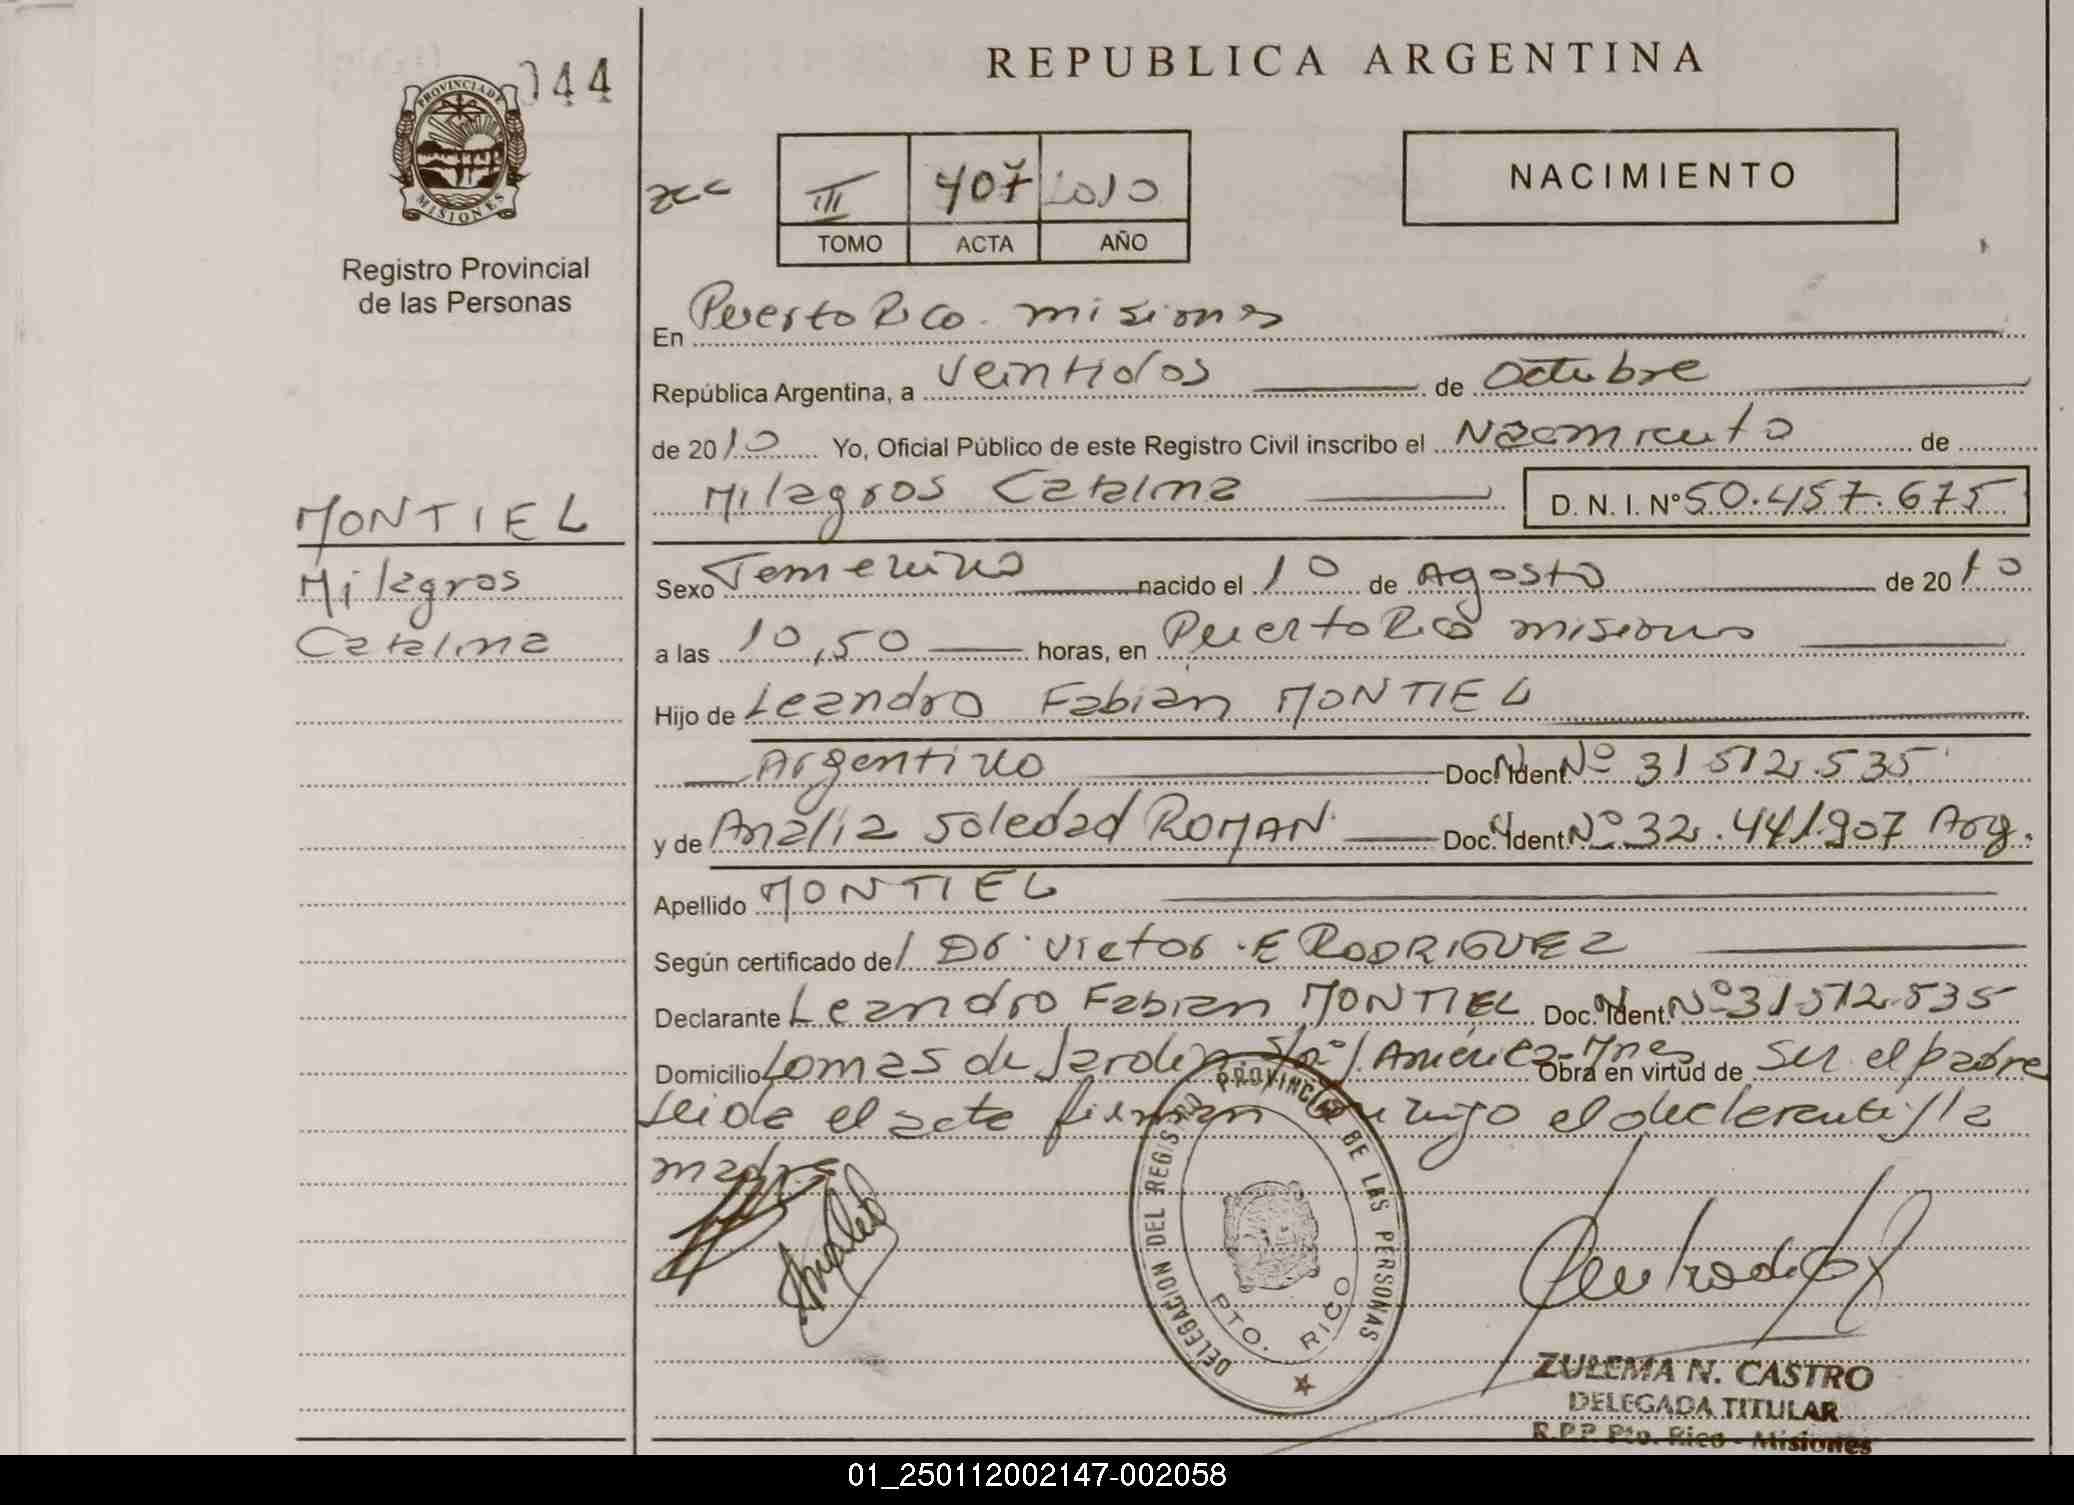 044
REPUBLICA ARGENTINA
PROVINCIA DE
MISIONES
Registro Provincial
de las Personas
III 407 2010
TOMO ACTA AÑO
NACIMIENTO
En Puerto Rico. misiones
República Argentina, a Veintidos de Octubre
de 2010 Yo, Oficial Público de este Registro Civil inscribo el Nacimiento de
Milagros Catalina D. N. I. Nº 50.457.675
MONTIEL
Milagros
Catalina
Sexo Femenino nacido el 10 de Agosto de 2010
a las 10,50 horas, en Puerto Rico misiones
Hijo de Leandro Fabian MONTIEL
Argentino Doc. Ident. Nº 31 512.535
y de Analia Soledad ROMAN Doc. Ident. Nº 32.441.907 Arg.
Apellido MONTIEL
Según certificado del Dr. Victor .E RODRIGUEZ
Declarante Leandro Fabian MONTIEL Doc. Ident. Nº 31 512.535
Domicilio Lomas de Jardin America-Mnes Obra en virtud de ser el padre
Leida el acta firman el declarante y la
madre
DELEGACION DEL REGISTRO PROVINCIAL DE LAS PERSONAS
PTO. RICO
ZULEMA N. CASTRO
DELEGADA TITULAR
R.P.P. Pto. Rico - Misiones
01_250112002147-002058